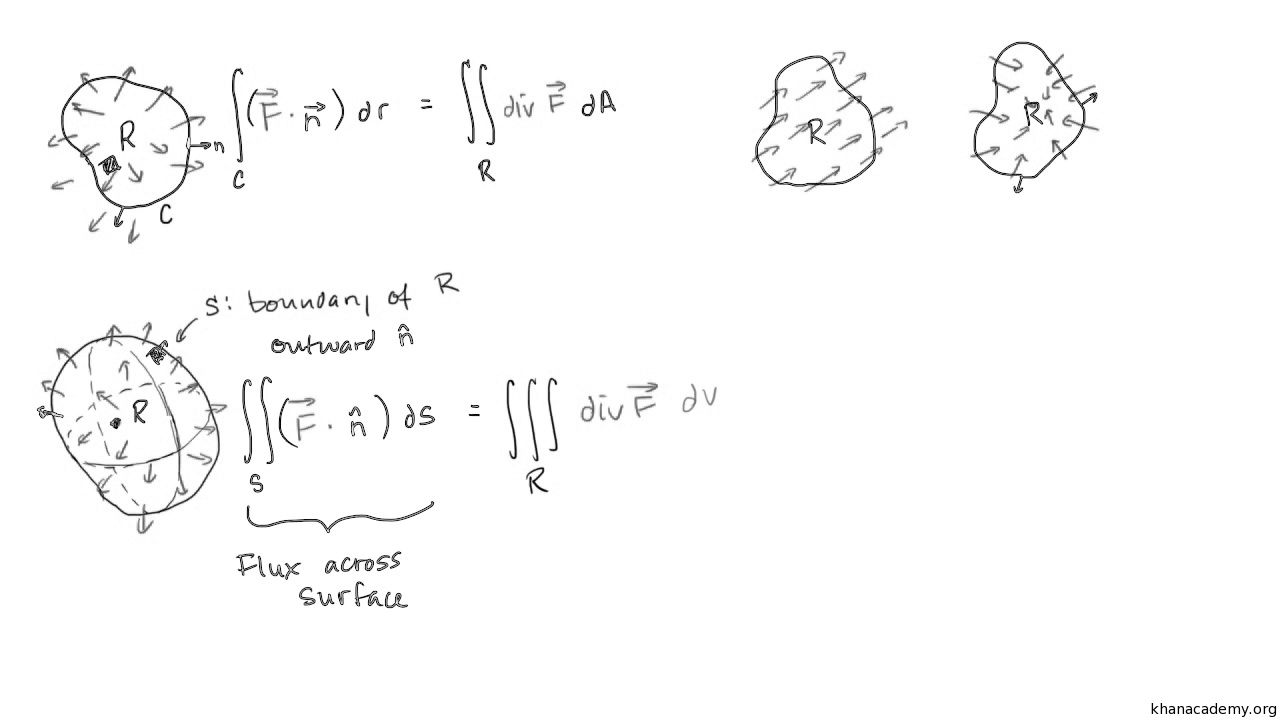 R
n
C
∫_C (F⃗ · n⃗) dr = ∬_R div F⃗ dA
R
R
S: boundary of R
outward n̂
R
∬_S (F⃗ · n̂) dS = ∭_R div F⃗ dv
Flux across
surface
khanacademy.org